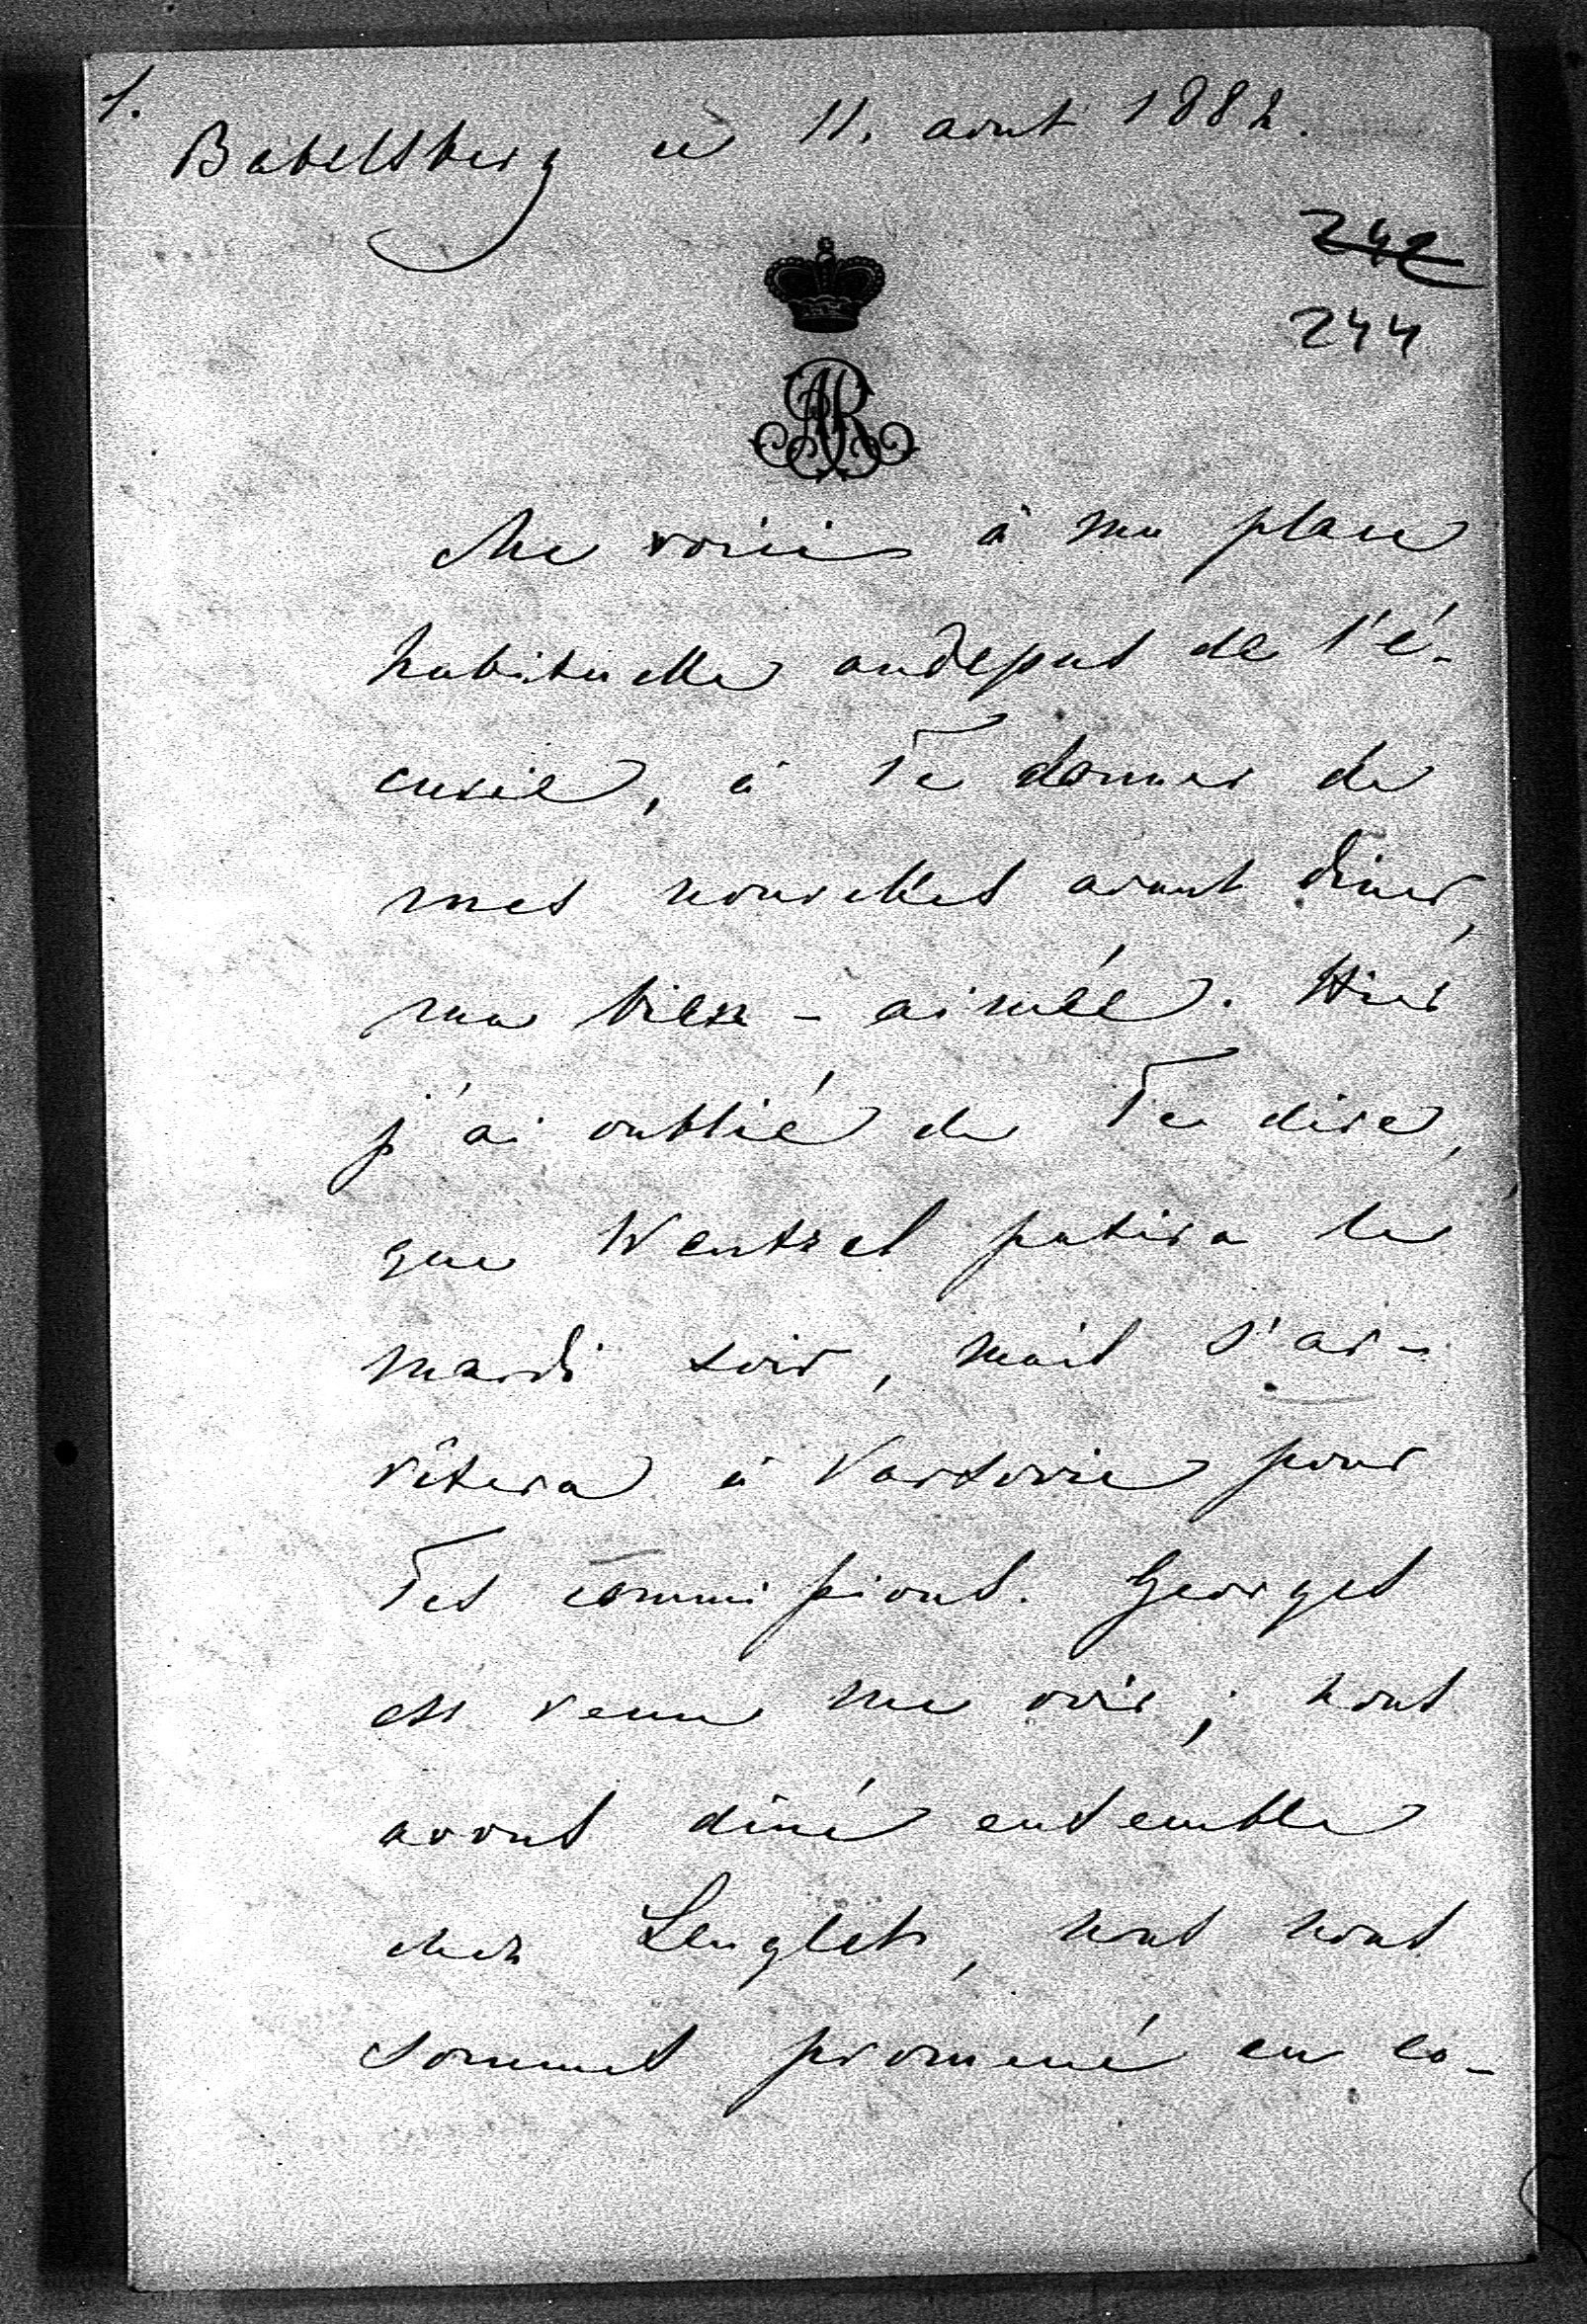 1.
Babelsberg ce 11. aout 1882.
242
244
AR
Me voici à ma place
habituelle audessus de l'é-
curie, à Te donner de
mes nouvelles avant diner,
ma bien-aimée. Hier
j'ai oublié de Te dire,
que Wentzel partira le
mardi soir, mais s'ar-
rêtera à Varsovie pour
Tes commissions. Georges
est venu me voir; nous
avons diné ensemble
chez Lenglet, nous nous
sommes promené en ca-